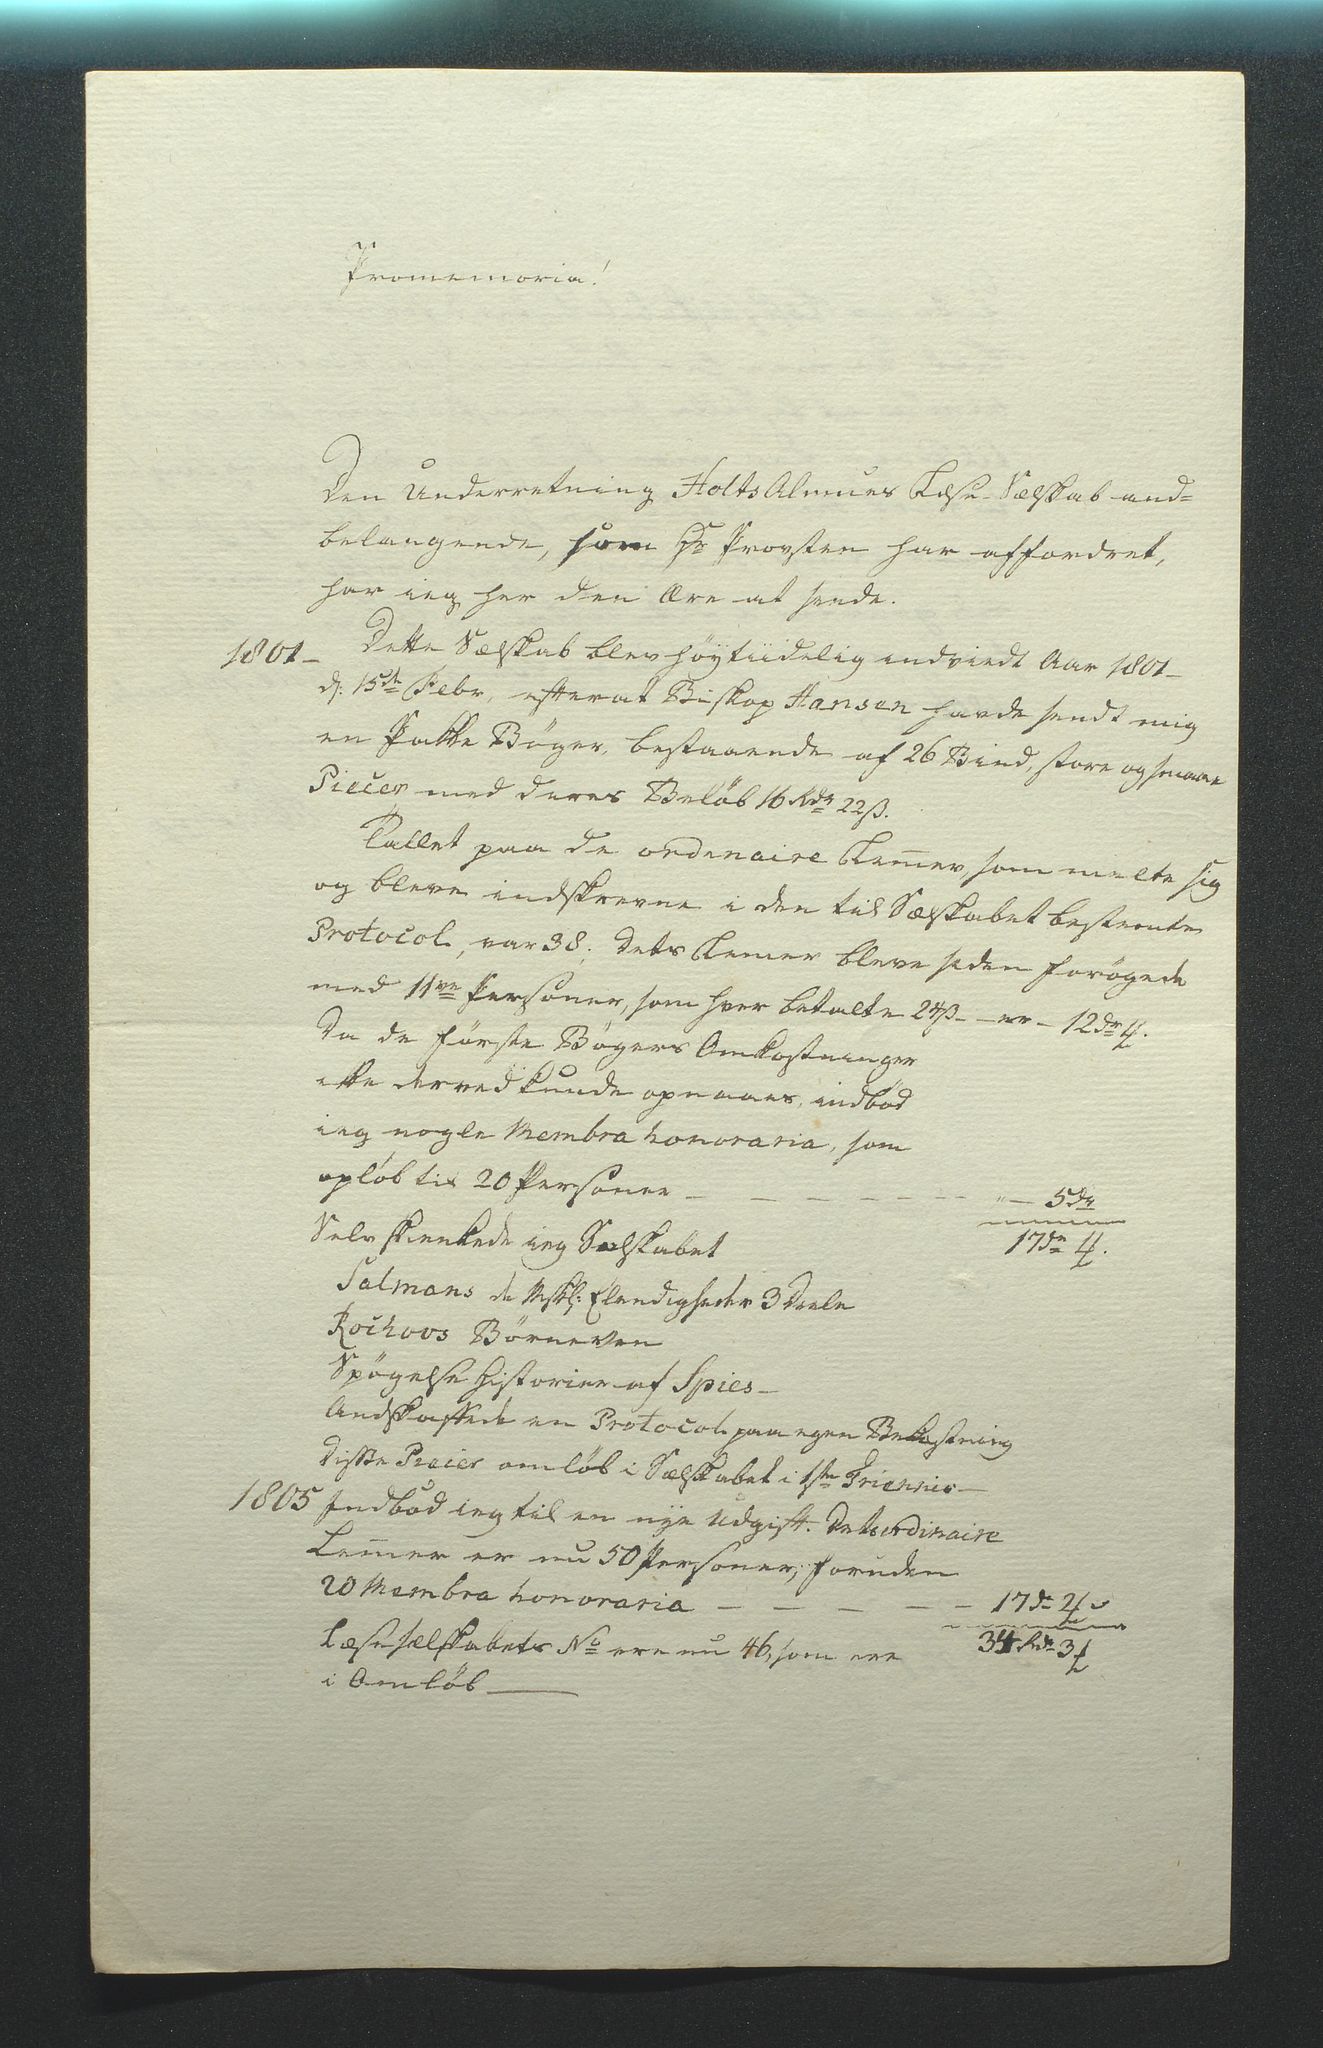 Promemoria!
Den Underretning Holts Almues Læse-Selskab and=
belangende, som Hr Provsten har affordret,
har ieg her den Ære at sende.
1801 - Dette Selskab blev høytiidelig indviedt Aar 1801 -
d: 15de Febr, efterat Biskop Hansen havde sendt mig
en Pakke Bøger, bestaaende af 26 Bind, store og smaae
Piecer med deres Beløb 16 Rdr 22 ß.
Tallet paa de ordenaire Lemmer, som meldte sig
og bleve indskrevne i den til Selskabet bestemte
Protocol, var 38; dets Lemer bleve siden forøgede
med 11ve Personer, som hver betalte 24 ß - er - 12 dr
Da de første Bøgers Omkostninger
ikke derved kunde opnaaes, indbød
ieg nogle Membra honoraria, som
opløb til 20 Personer - - - - - - - - " - 5 dr
Selv skienkede ieg Selskabet 17 dr
Salmans de Mskl: Elendigheder 3 Deele
Rochovs Børneven
Spøgelse Historier af Spies -
Andskaffede en Protocol paa egen Bekostning
Disse Piecer omløb i Selskabet i 1ste Triennio -
1805 Indbød ieg til en nye Udgift. Dets ordinaire
Lemmer er nu 50 Personer, foruden
20 Membra honoraria - - - - - 17 dr
Læse selskabets No ere nu 46, som ere 34 Rdr 3
i Omløb -